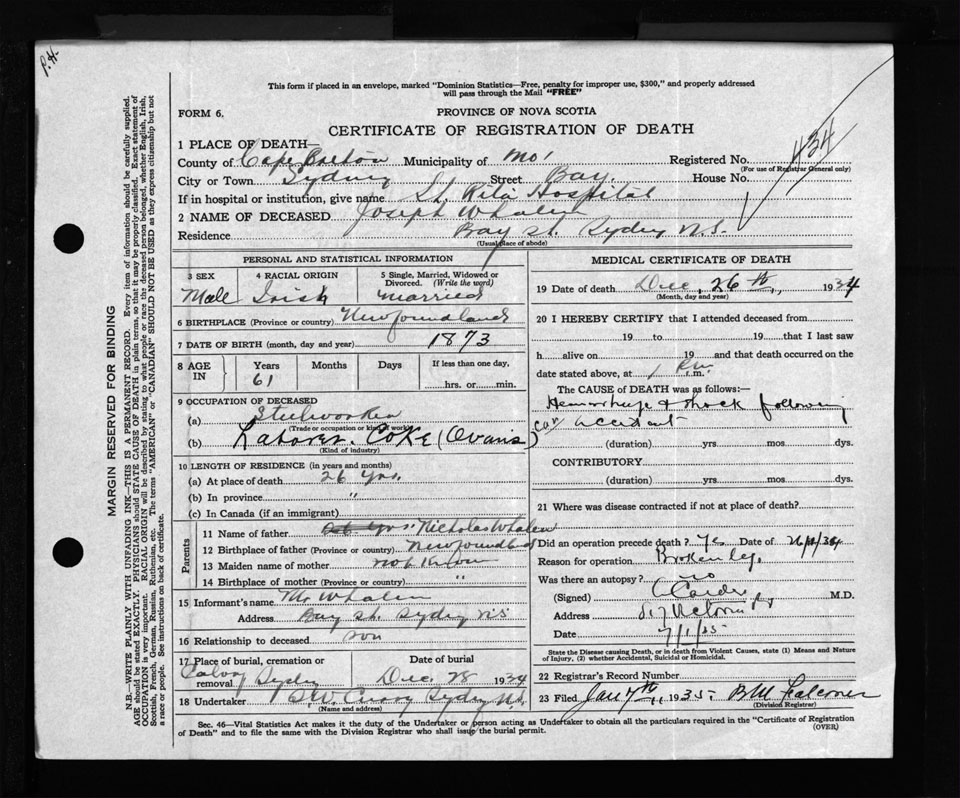 P.H.
This form if placed in an envelope, marked "Dominion Statistics—Free, penalty for improper use, $300," and properly addressed
will pass through the Mail "FREE"
FORM 6.
PROVINCE OF NOVA SCOTIA
CERTIFICATE OF REGISTRATION OF DEATH
1 PLACE OF DEATH—
County of Cape Breton Municipality of Registered No. 434
(For use of Registrar General only)
City or Town Sydney Street Bay. House No.
If in hospital or institution, give name St. Rita Hospital
2 NAME OF DECEASED Joseph Whalen
Residence Bay St. Sydney N.S.
(Usual place of abode)
PERSONAL AND STATISTICAL INFORMATION
3 SEX
Male
4 RACIAL ORIGIN
Irish
5 Single, Married, Widowed or
Divorced. (Write the word)
Married
6 BIRTHPLACE (Province or country) Newfoundland
7 DATE OF BIRTH (month, day and year) 1873
8 AGE
IN
Years
61
Months
Days
If less than one day,
hrs. or min.
9 OCCUPATION OF DECEASED
(a) Steelworker
(Trade or occupation or kind of work)
(b) Laborer. Coke (Ovans)
(Kind of industry)
10 LENGTH OF RESIDENCE (in years and months)
(a) At place of death 26 yrs.
(b) In province "
(c) In Canada (if an immigrant)
Parents
11 Name of father Nicholas Whalen
12 Birthplace of father (Province or country) Newfoundland
13 Maiden name of mother not Known
14 Birthplace of mother (Province or country) "
15 Informant's name Mr Whalen
Address Bay St. Sydney N.S.
16 Relationship to deceased son
17 Place of burial, cremation or
removal Sydney
Date of burial
Dec 28 1934
18 Undertaker Sydney N.S.
(Name and address)
MEDICAL CERTIFICATE OF DEATH
19 Date of death Dec. 26th, 1934
(Month, day and year)
20 I HEREBY CERTIFY that I attended deceased from
19 to 19 that I last saw
h alive on 19 and that death occurred on the
date stated above, at 1 P.M. m.
The CAUSE OF DEATH was as follows:—
Hemorrhage & Shock following
car accident
(duration) yrs. mos. dys.
CONTRIBUTORY
(duration) yrs. mos. dys.
21 Where was disease contracted if not at place of death?
Did an operation precede death? Yes Date of
Reason for operation Broken leg.
Was there an autopsy? no
(Signed) M.D.
Address
Date 7/1/35
State the Disease causing Death, or in death from Violent Causes, state (1) Means and Nature
of Injury, (2) whether Accidental, Suicidal or Homicidal.
22 Registrar's Record Number
23 Filed Jan 7th, 1935 B M Falconer
(Division Registrar)
Sec. 46—Vital Statistics Act makes it the duty of the Undertaker or person acting as Undertaker to obtain all the particulars required in the "Certificate of Registration
of Death" and to file the same with the Division Registrar who shall issue the burial permit.
(OVER)
MARGIN RESERVED FOR BINDING
N.B.—WRITE PLAINLY WITH UNFADING INK—THIS IS A PERMANENT RECORD. Every item of information should be carefully supplied.
AGE should be stated EXACTLY. PHYSICIANS should STATE CAUSE OF DEATH in plain terms, so that it may be properly classified. Exact statement of
OCCUPATION is very important. RACIAL ORIGIN will be described by stating to what people or race the deceased person belonged, whether English, Irish,
Scottish, French, German, Russian, Ruthenian, etc. The terms "AMERICAN" or "CANADIAN" SHOULD NOT BE USED as they express citizenship but not
a race or people. See instructions on back of certificate.